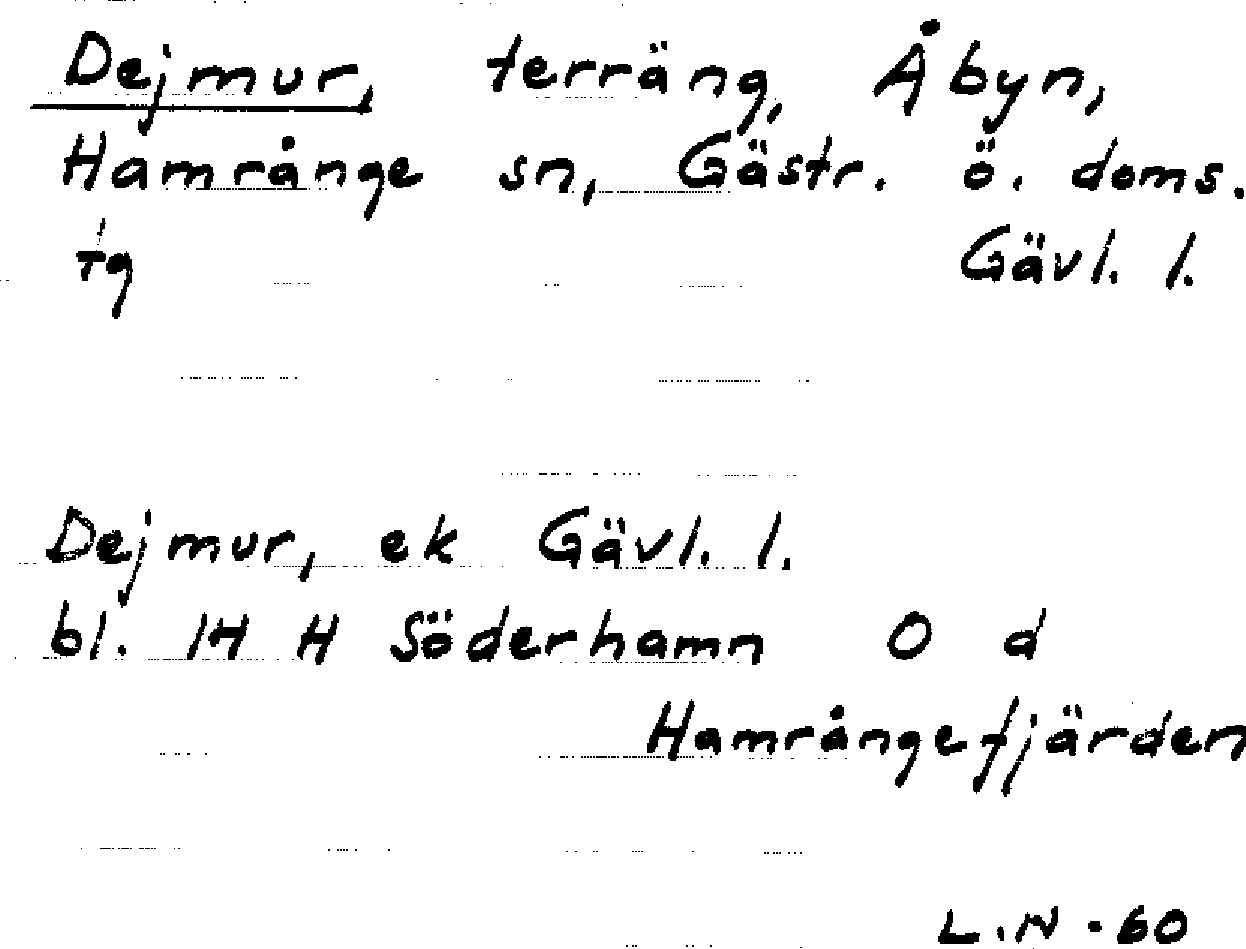 Dejmur, terräng, Åbyn,
Hamrånge sn, Gästr. ö. doms.
tg Gävl. l.
Dejmur, ek Gävl. l.
bl. 14 H Söderhamn O d
Hamrångefjärden
L.N - 60